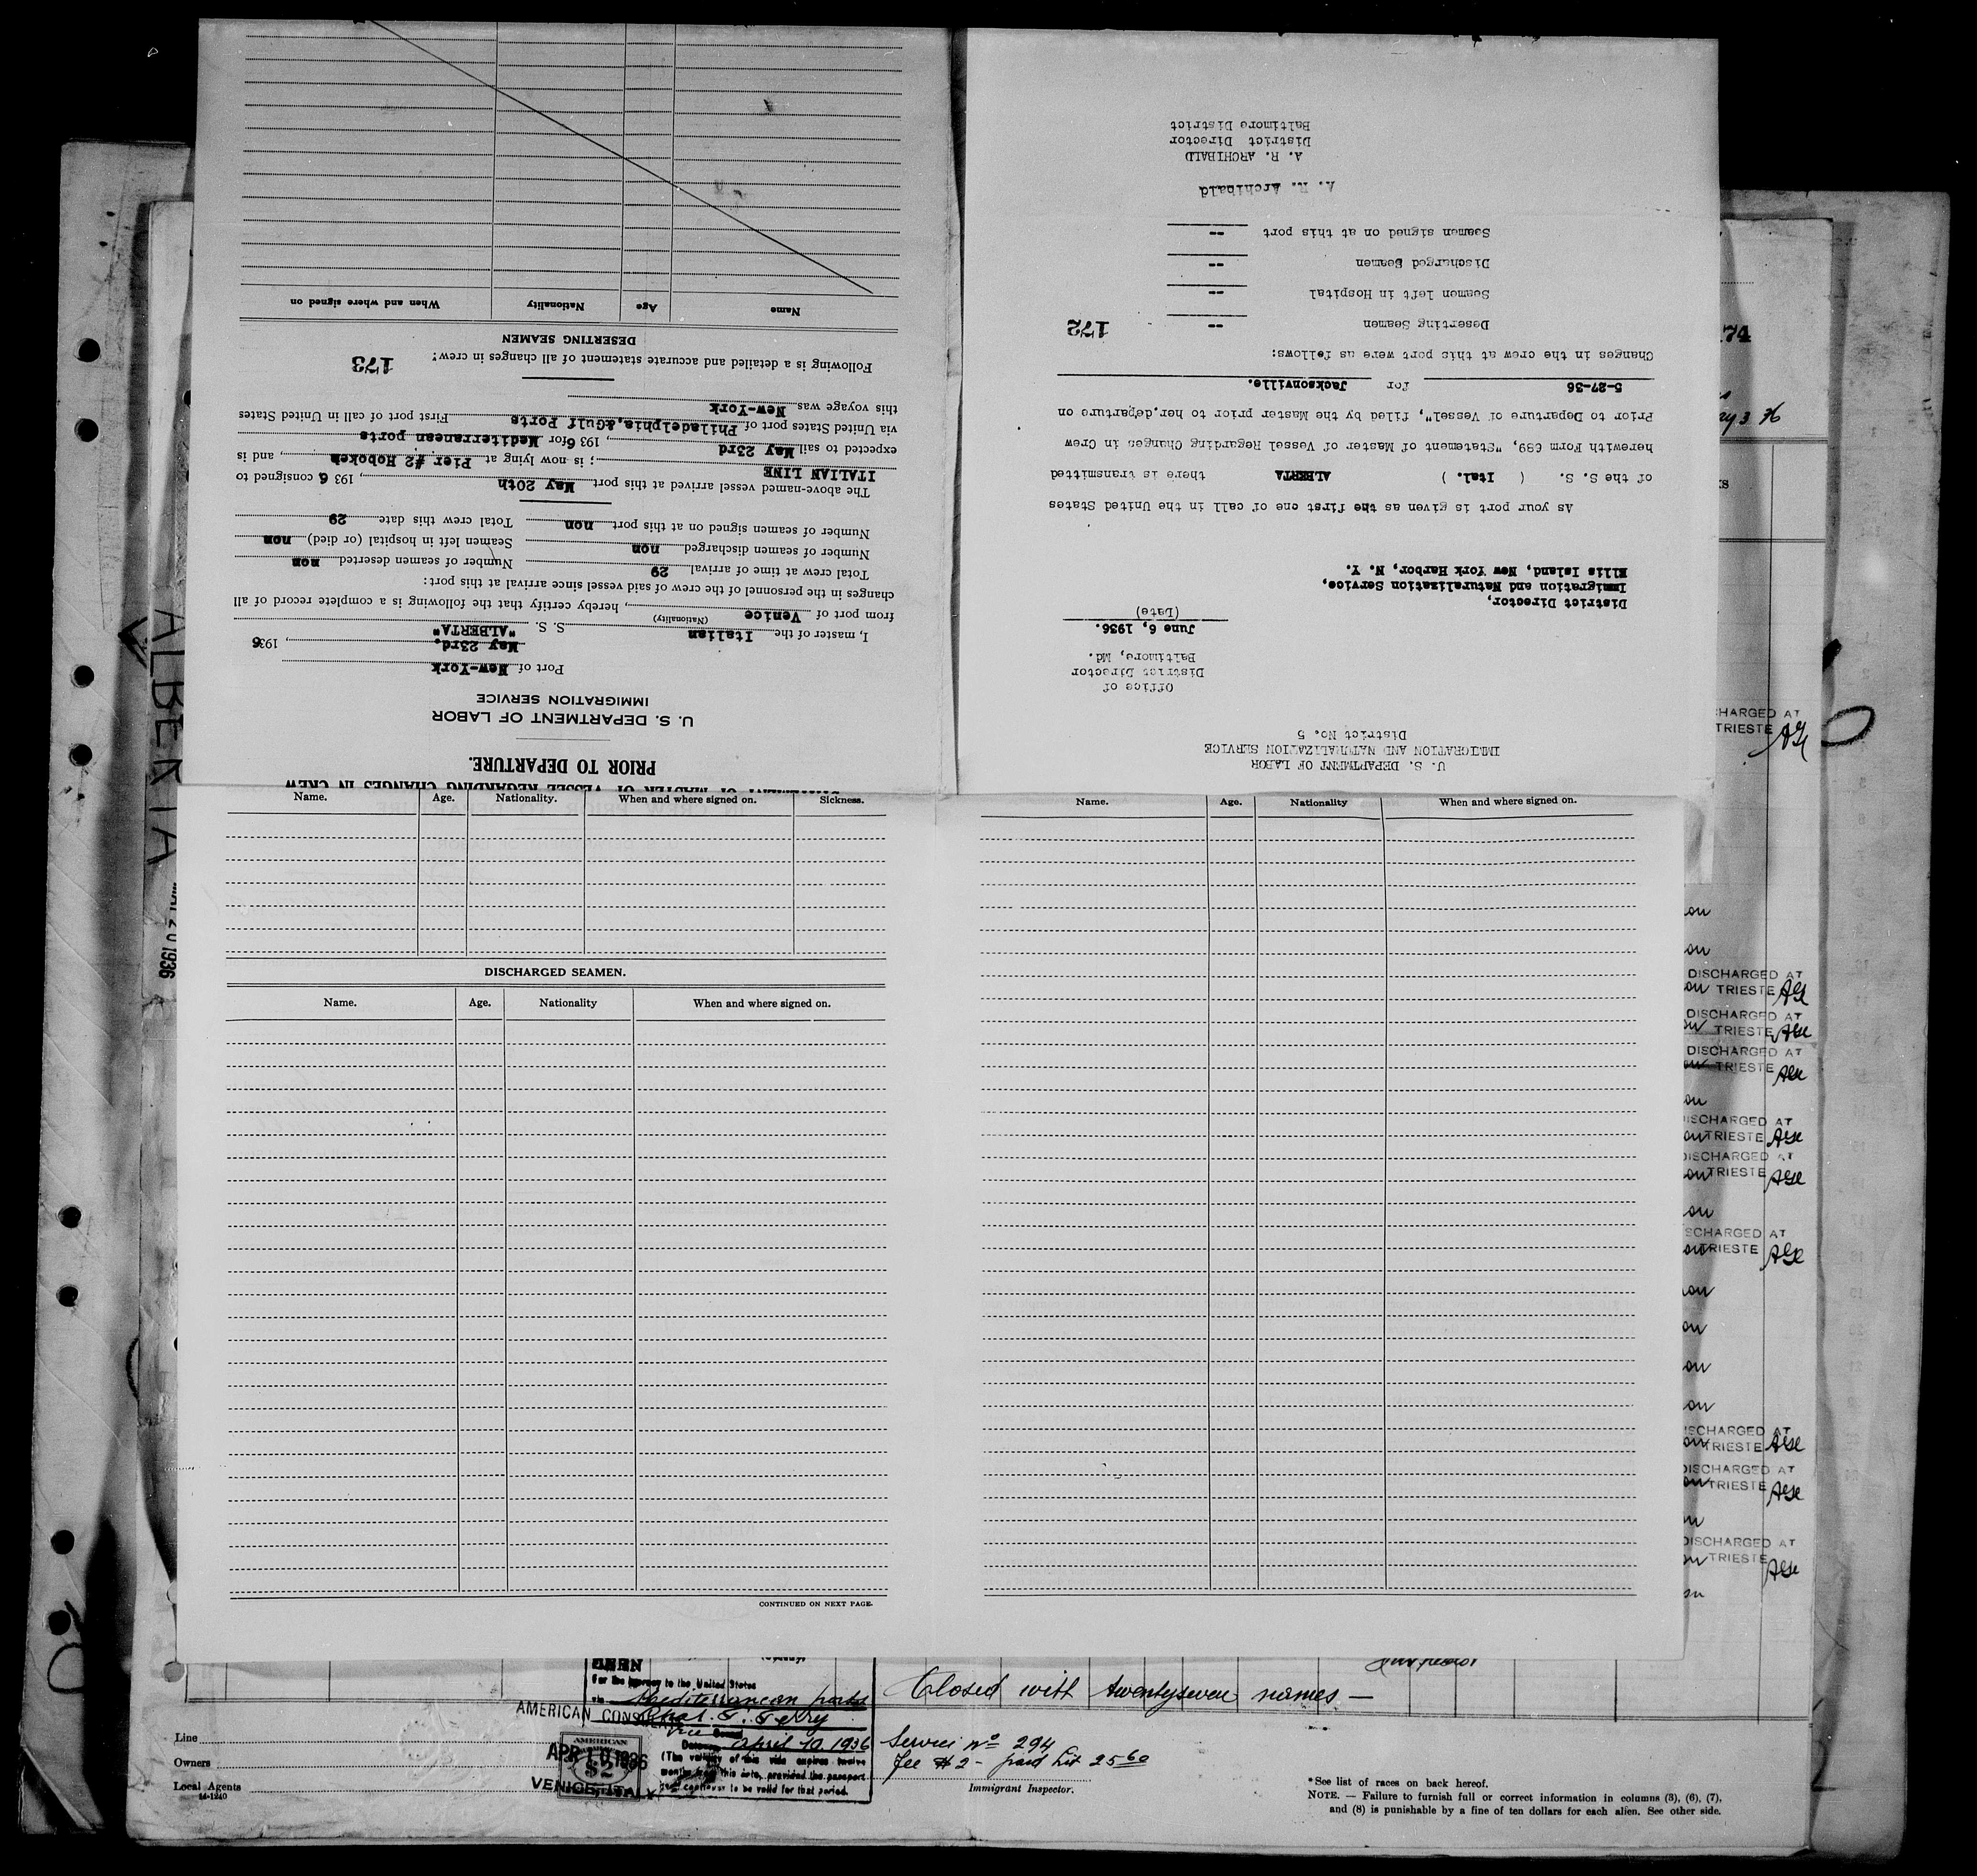 STATEMENT OF MASTER OF VESSEL REGARDING CHANGES IN CREW
PRIOR TO DEPARTURE.
U. S. DEPARTMENT OF LABOR
IMMIGRATION SERVICE
Port of New-York
May 23rd, , 1936
I, master of the Italian S. S. "ALBERTA"
(Nationality)
from port of Venice , hereby certify that the following is a complete record of all
changes in the personnel of the crew of said vessel since arrival at this port:
Total crew at time of arrival 29 Number of seamen deserted non
Number of seamen discharged non Seamen left in hospital (or died) non
Number of seamen signed on at this port non Total crew this date 29
The above-named vessel arrived at this port May 20th , 1936 consigned to
ITALIAN LINE ; is now lying at Pier #2 Hoboken , and is
expected to sail May 23rd , 1936 for Mediterranean ports
via United States port of Philadelphia,&Gulf Ports First port of call in United States
this voyage was New-York
Following is a detailed and accurate statement of all changes in crew: 173
DESERTING SEAMEN
Name Age Nationality When and where signed on
U. S. DEPARTMENT OF LABOR
IMMIGRATION AND NATURALIZATION SERVICE
District No. 5
Office of
District Director
Baltimore, Md.
June 6, 1936.
(Date)
District Director,
Immigration and Naturalization Service,
Ellis Island, New York Harbor, N. Y.
As your port is given as the first one of call in the United States
of the S. S. ( Ital. ) ALBERTA there is transmitted
herewith Form 689, "Statement of Master of Vessel Regarding Changes in Crew
Prior to Departure of Vessel", filed by the Master prior to her departure on
5-27-36 for Jacksonville.
Changes in the crew at this port were as follows:
Deserting Seamen -- 172
Seamen left in Hospital --
Discharged Seamen --
Seamen signed on at this port --
A. R. Archibald
A. R. ARCHIBALD
District Director
Baltimore District
Name. Age. Nationality. When and where signed on. Sickness.
DISCHARGED SEAMEN.
Name. Age. Nationality When and where signed on.
CONTINUED ON NEXT PAGE.
Name. Age. Nationality When and where signed on.
ALBERTA
MAY 20 1936
74
CHARGED AT
TRIESTE
DISCHARGED AT
TRIESTE
DISCHARGED AT
TRIESTE
DISCHARGED AT
TRIESTE
DISCHARGED AT
TRIESTE
DISCHARGED AT
TRIESTE
SCHARGED AT
TRIESTE
SCHARGED AT
TRIESTE
DISCHARGED AT
TRIESTE
DISCHARGED AT
TRIESTE
For the journey to the United States
via Mediterranean ports
Closed with twentyseven names —
AMERICAN CONSUL
Vice
Date April 10, 1936
(The validity of this visa expires twelve
months from this date, provided the passport
continues to be valid for that period.
AMERICAN
$2
APR 10 1936
VENICE, ITALY
Service No 294
Fee $2 - paid Lit 25.60
Immigrant Inspector.
Line
Owners
Local Agents
14-1240
*See list of races on back hereof.
NOTE. — Failure to furnish full or correct information in columns (3), (6), (7),
and (8) is punishable by a fine of ten dollars for each alien. See other side.